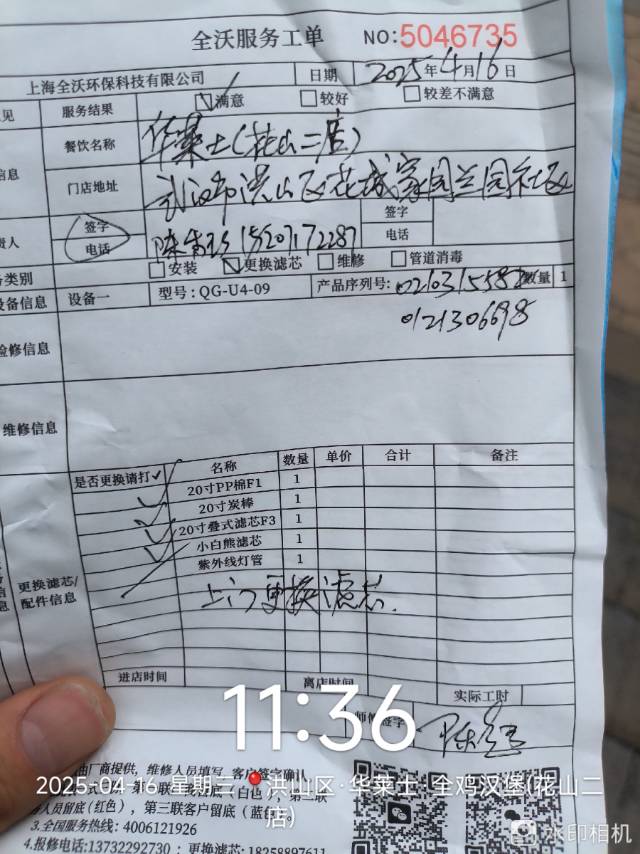 全沃服务工单 NO:5046735
上海全沃环保科技有限公司 日期 2025年4月16日
见 服务结果 ☑满意 □较好 □较差不满意
餐饮名称 华莱士(花山二店)
信息 门店地址 武汉市洪山区花城家园兰园社区
责人 签字 签字
电话 15207172287 电话
务类别 □安装 ☑更换滤芯 □维修 □管道消毒
设备信息 设备一 型号:QG-U4-09 产品序列号: 数量 1
0121306698
检修信息
维修信息
是否更换请打✓ 名称 数量 单价 合计 备注
✓ 20寸PP棉F1 1
✓ 20寸炭棒 1
✓ 20寸叠式滤芯F3 1
✓ 小白熊滤芯 1
紫外线灯管 1
更换滤芯/配件信息
上门更换滤芯.
进店时间 离店时间 实际工时
11:36
师傅签字
由厂商提供,维修人员填写,客户签字确认
2025.04.16 星期三 洪山区·华莱士 全鸡汉堡(花山二店)
底(红色),第三联客户留底(蓝色)
3.全国服务热线:4006121926
4.报修电话:13732292730 更换滤芯:18258897611
水印相机